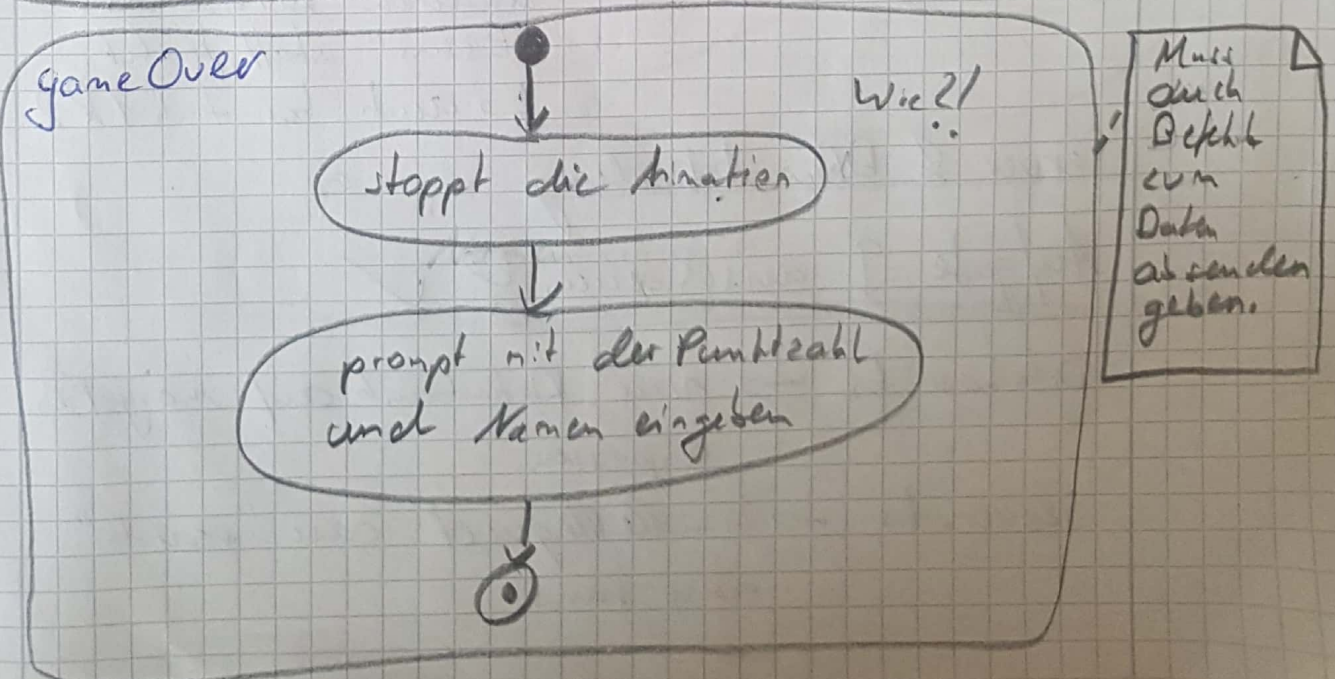 gameOver
Wie?!
stoppt die Animation
prompt mit der Punktzahl
und Namen eingeben
Muss
auch
Befehl
zum
Daten
absenden
geben.